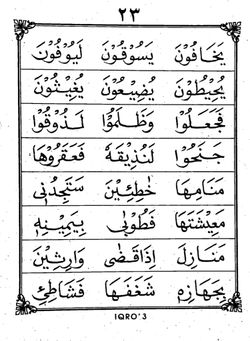 ٢٣
يَخَافُوْنَ يَسُوْقُوْنَ لَيُوْفُوْنَ
يُحِيْطُوْنَ يُضِيْعُوْنَ يُغِيْثُوْنَ
فَجَعَلُوْا وَظَلَمُوْا لَذُوْقُوْا
جَنَحُوْا لَنُذِيْقَهُ فَعَقَرُوْهَا
مَنَامِهَا خٰطِـِٔيْنَ سَتَجِدُنِيْ
مَعِيْشَتَهَا فَطُوْبٰى بِيَمِيْنِهٖ
مَنَازِلَ اِذَاقَضٰى وَارِثِيْنَ
بِجَهَازِهِ شَغَفَهَا فَشَاطِئِ
IQRO'3